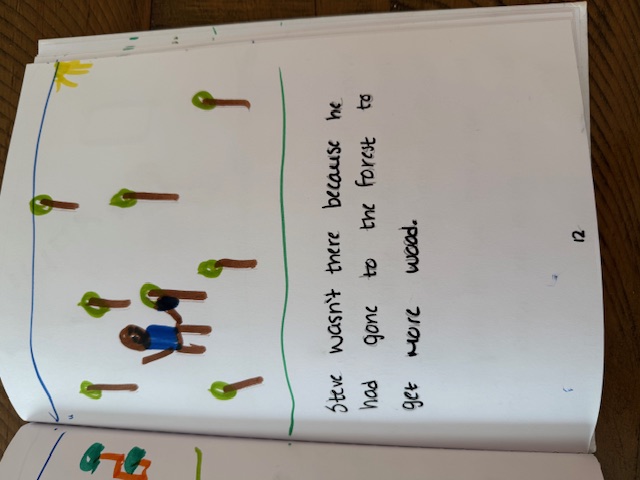 Steve wasn't there because he
had gone to the forest to
get more wood.
12